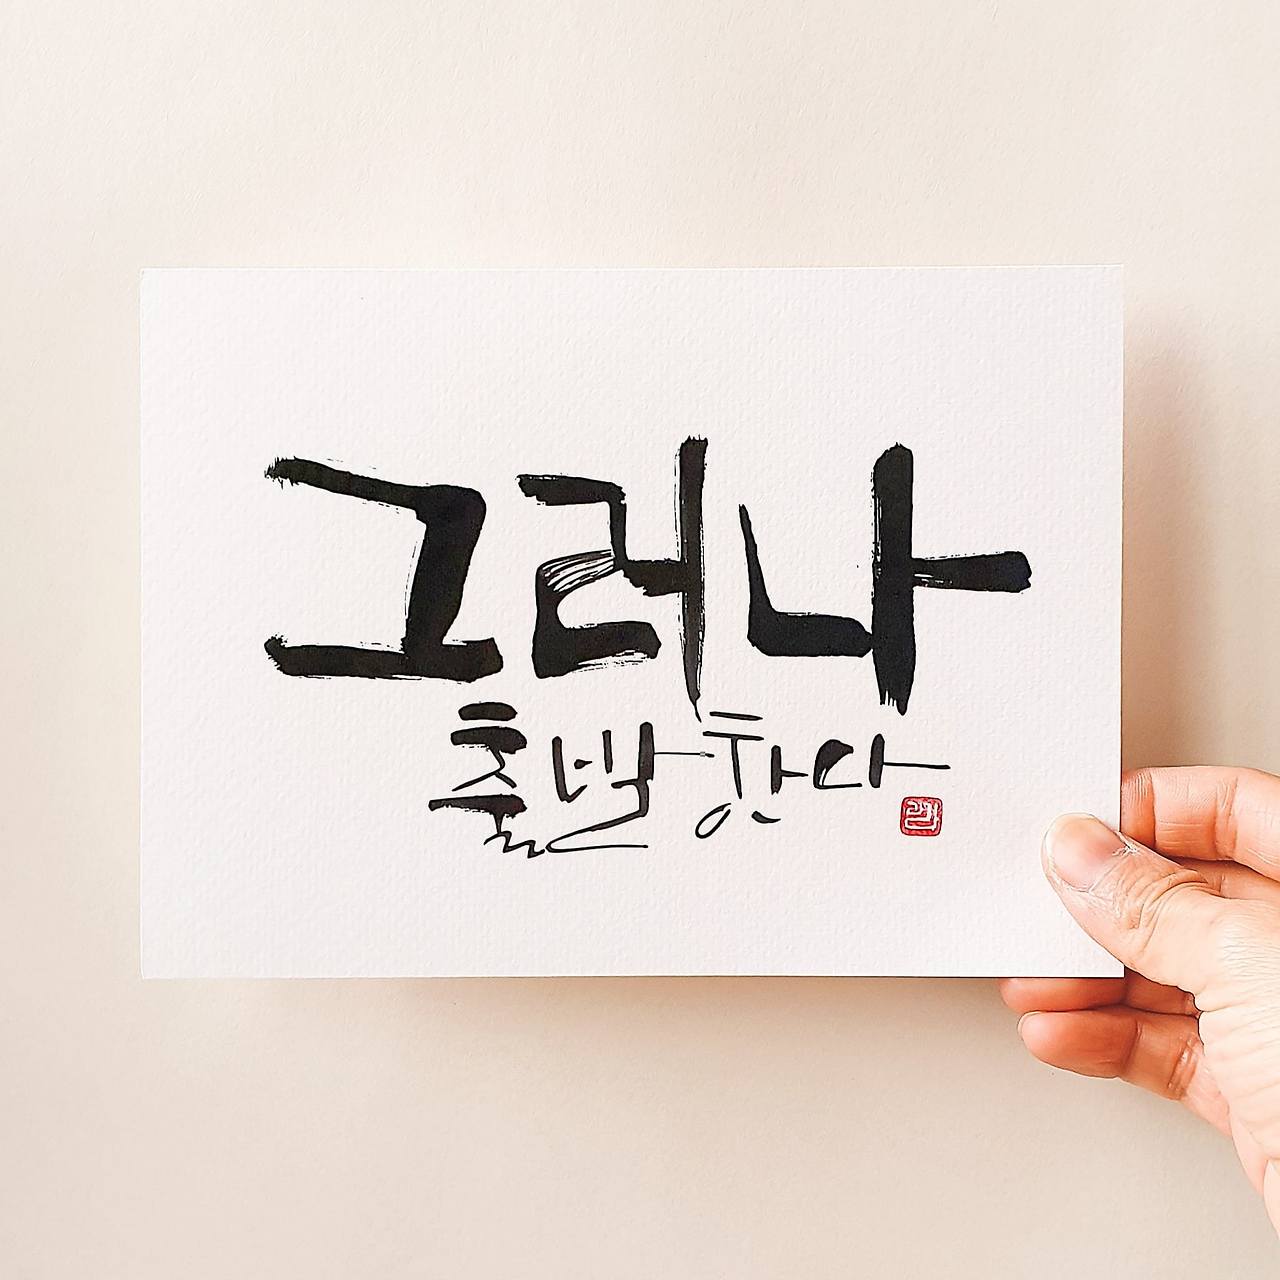 그러나
출발한다